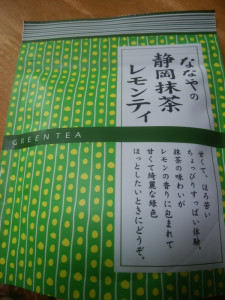 ななやの
静岡抹茶
レモンティ
甘くて、ほろ苦い
ちょっぴりすっぱい体験。
抹茶の味わいが
レモンの香りに包まれて
甘くて綺麗な緑色
ほっとしたいときにどうぞ。
GREEN TEA